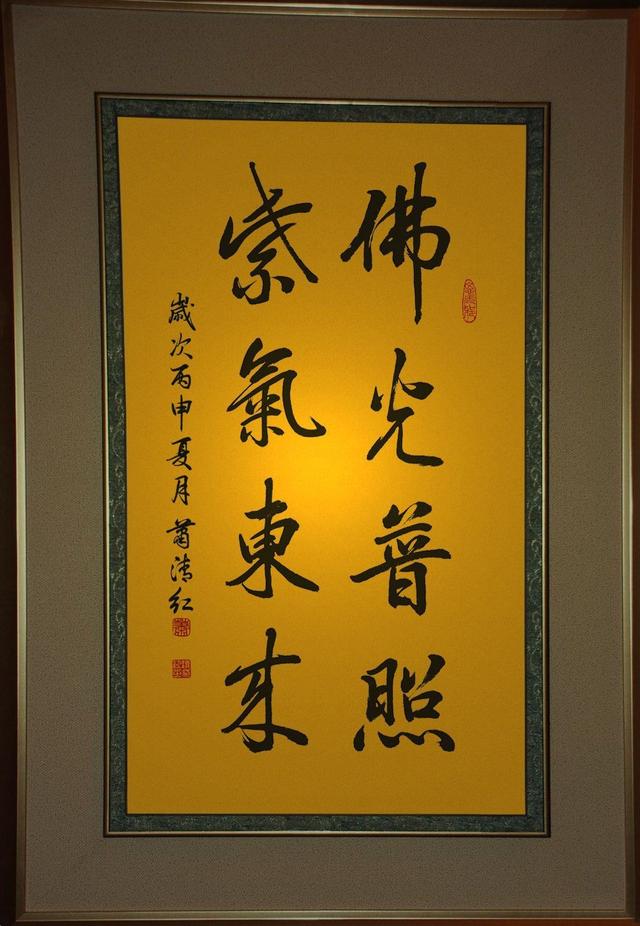 佛光普照
紫氣東来
歲次丙申夏月蕭清红